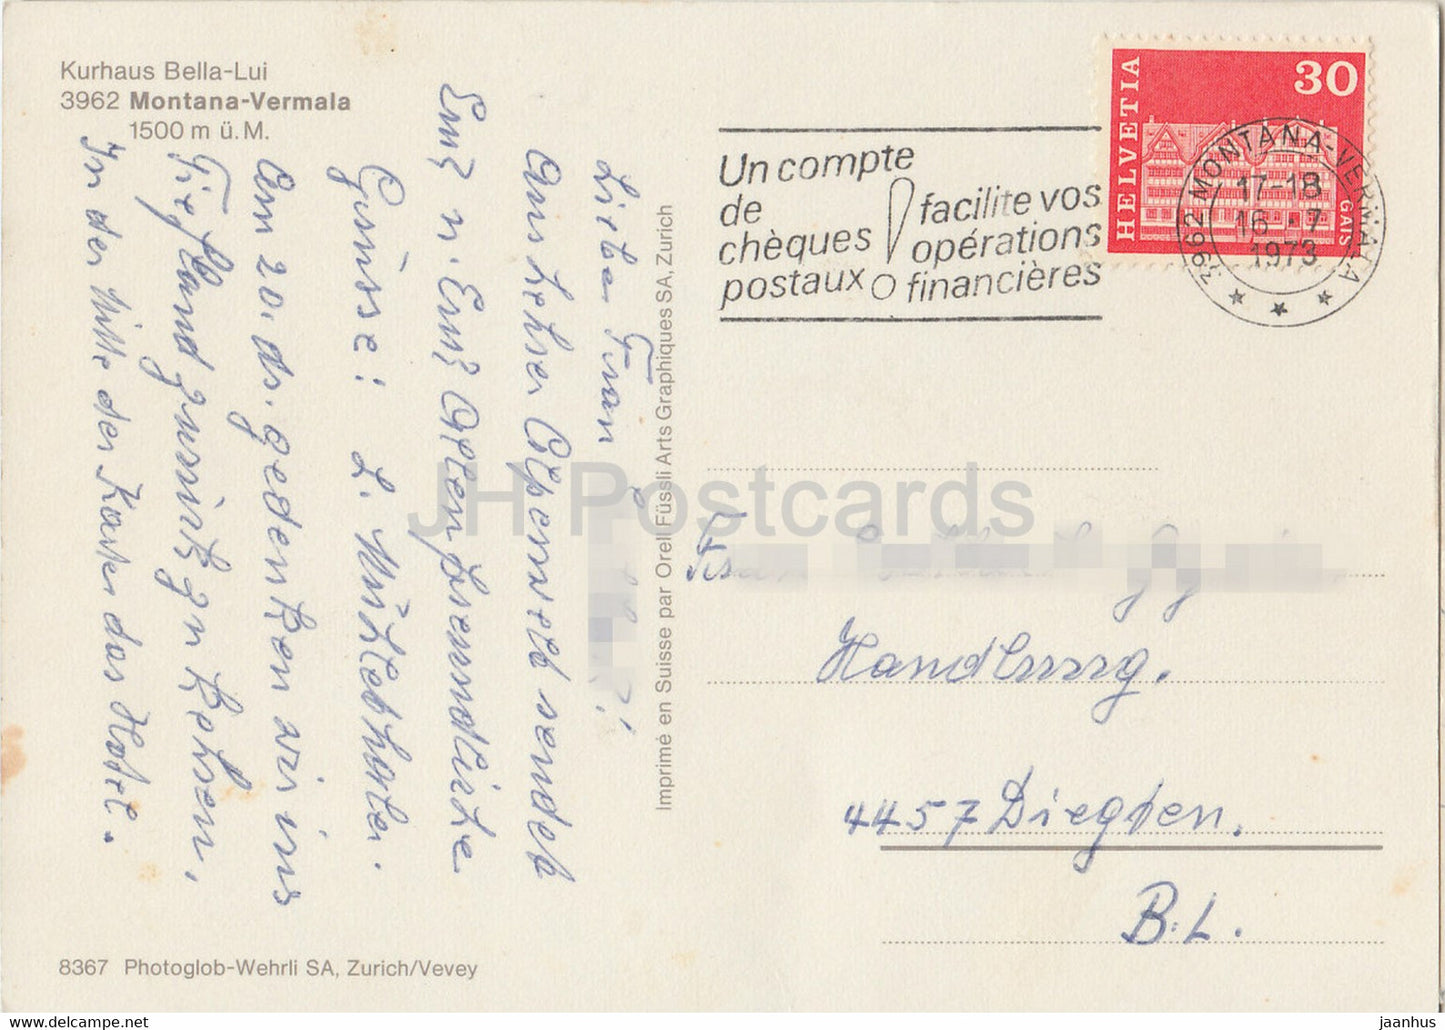 Kurhaus Bella-Lui
3962 Montana-Vermala
1500 m ü. M.
Lieber Frau
Aus hehrer Alpenwelt sendet
Eu⁠ch n. Euch Alten freundliche
Grüsse: L. Mühlethaler.
Am 20. ds. gedenken wir ins
Tiefland zurückzukehren.
In der Mitte der Karte das Hotel.
8367 Photoglob-Wehrli SA, Zurich/Vevey
Imprimé en Suisse par Orell Füssli Arts Graphiques SA, Zurich
Un compte
de
chèques
postaux
facilite vos
opérations
financières
HELVETIA
30
GAIS
3962 MONTANA-VERMALA
17-18
16. 7
1973
Handlung.
4457 Diegten.
B.L.
JH Postcards
delcampe.net
jaanhus